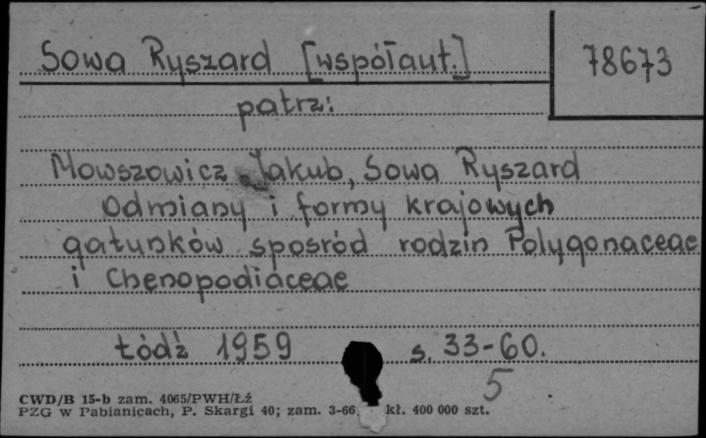 Sowa Ryszard [współaut.]
78673
patrz:
Mowszowicz Jakub, Sowa Ryszard
Odmiany i formy krajowych
gatunków spośród rodzin Polygonaceae
i Chenopodiaceae
Łódź 1959 s. 33-60.
5
CWD/B 15-b zam. 4065/PWH/Łź
PZG w Pabianicach, P. Skargi 40; zam. 3-66 kł. 400 000 szt.